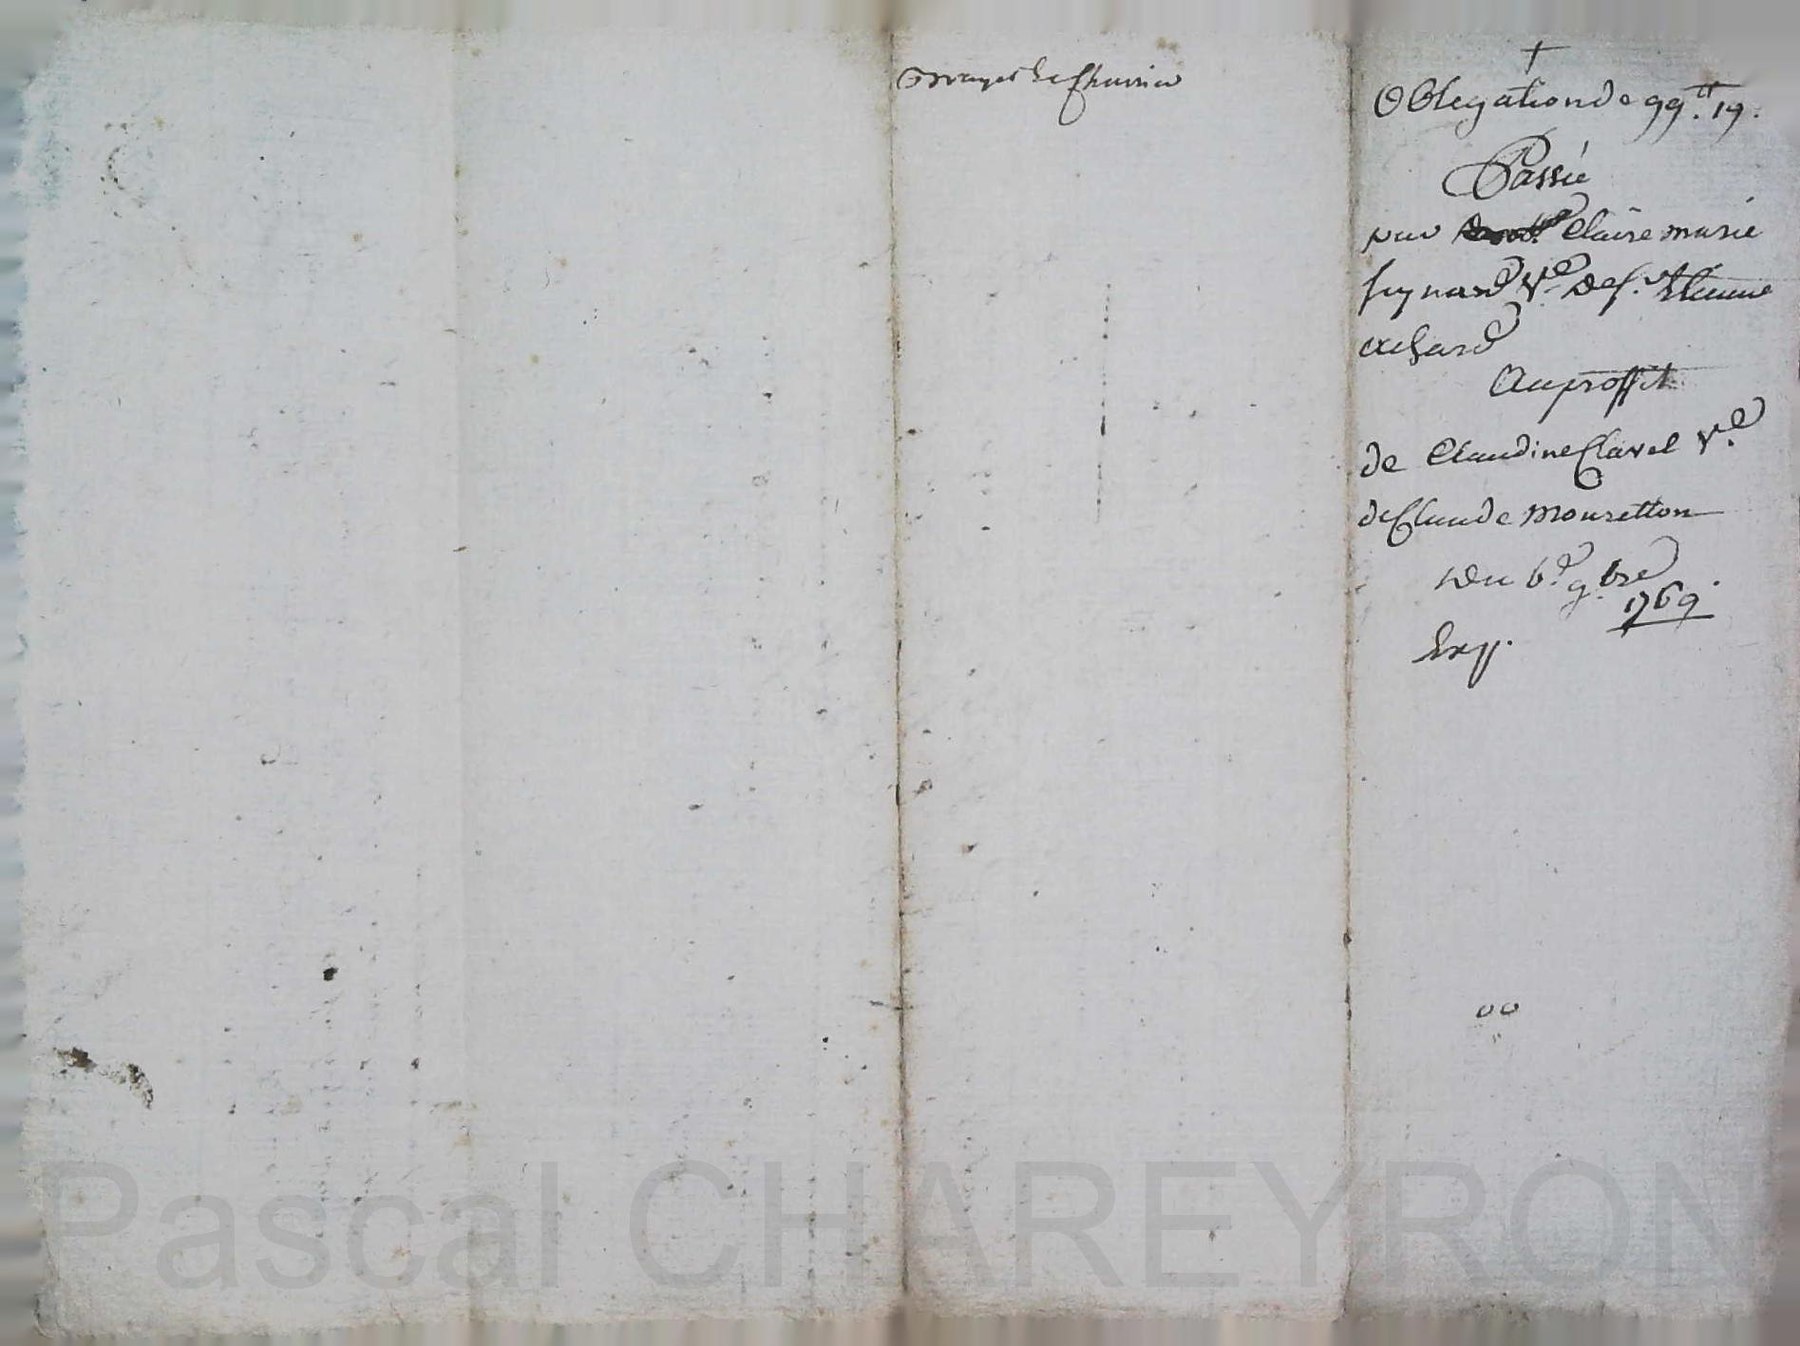 Oblegation de 99.tt 19.
Passée
par Claire marie
V.e de f. Etienne
achard
Au proffit
de Claudine Clavel V.e
de Claude mouretton
Du 6.e 9.bre
1769.
Exp.
Pascal CHAREYRON